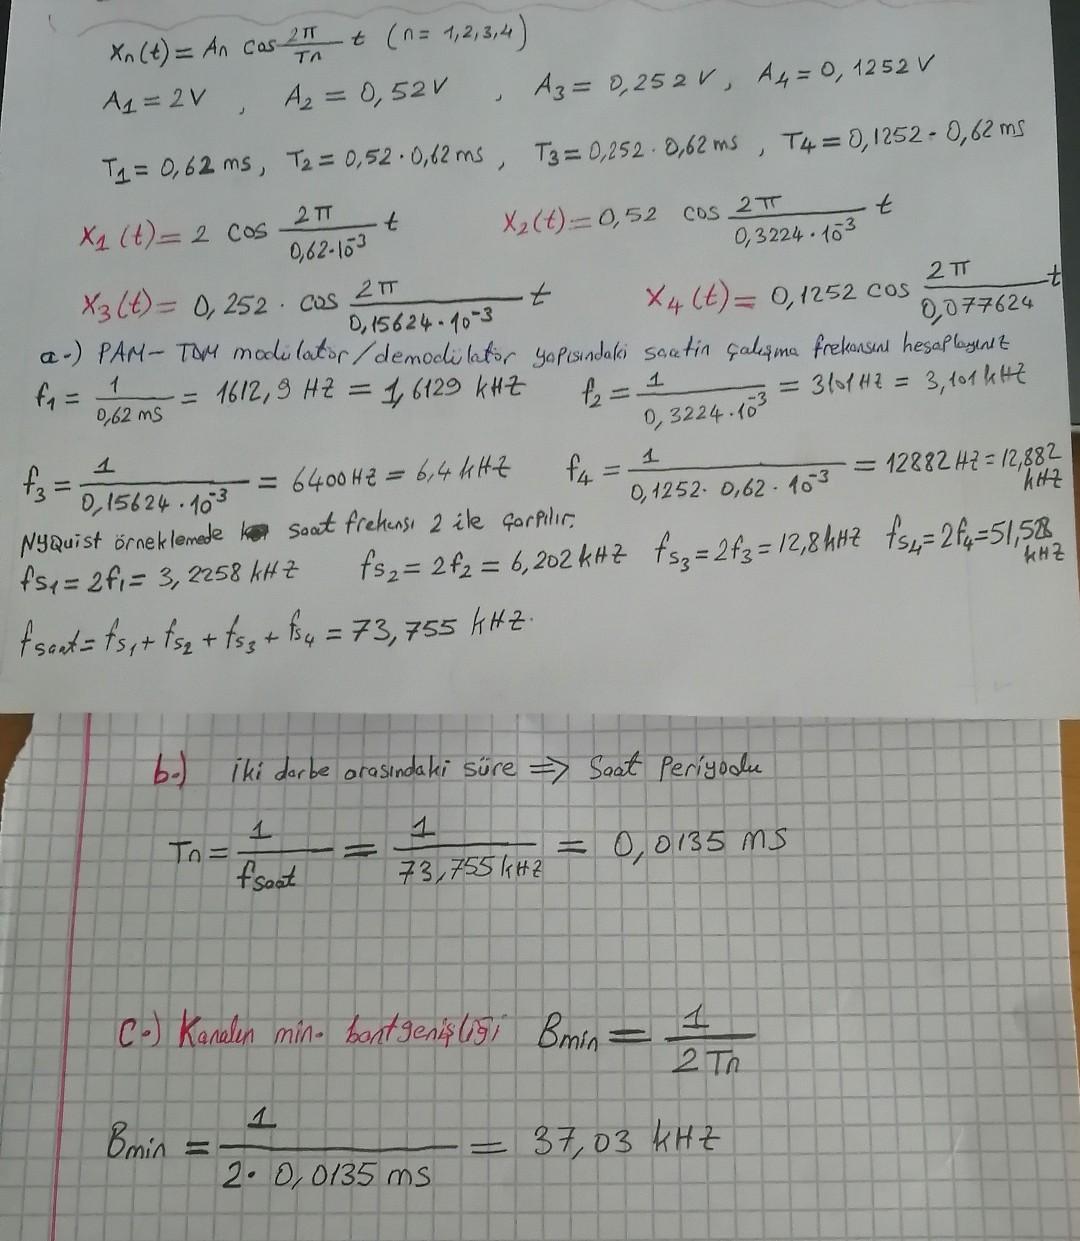 Xn(t) = An cos 2π/Tn t (n = 1,2,3,4)
A1 = 2V , A2 = 0,52V , A3 = 0,252 V, A4 = 0,1252 V
T1 = 0,62 ms, T2 = 0,52 · 0,62 ms , T3 = 0,252 · 0,62 ms , T4 = 0,1252 - 0,62 ms
X1 (t) = 2 cos 2π/0,62·10^-3 t X2(t) = 0,52 cos 2π/0,3224·10^-3 t
X3(t) = 0,252 · cos 2π/0,15624·10^-3 t X4(t) = 0,1252 cos 2π/0,077624 t
a-) PAM-TDM modülatör/demodülatör yapısındaki saatin çalışma frekansını hesaplayınız
f1 = 1/0,62 ms = 1612,9 HZ = 1,6129 kHZ f2 = 1/0,3224·10^-3 = 3101 HZ = 3,101 kHZ
f3 = 1/0,15624·10^-3 = 6400 HZ = 6,4 kHZ f4 = 1/0,1252· 0,62 · 10^-3 = 12882 HZ = 12,882 kHZ
NYQuist örneklemede saat frekansı 2 ile çarpılır.
fs1 = 2f1 = 3,2258 kHZ fs2 = 2f2 = 6,202 kHZ fs3 = 2f3 = 12,8 kHZ fs4 = 2f4 = 51,528 kHZ
fsaat = fs1 + fs2 + fs3 + fs4 = 73,755 kHZ.
b-) İki darbe arasındaki süre => Saat Periyodu
Tn = 1/fsaat = 1/73,755 kHZ = 0,0135 ms
C-) Kanalın min. bantgenişliği Bmin = 1/2 Tn
Bmin = 1/2· 0,0135 ms = 37,03 kHZ